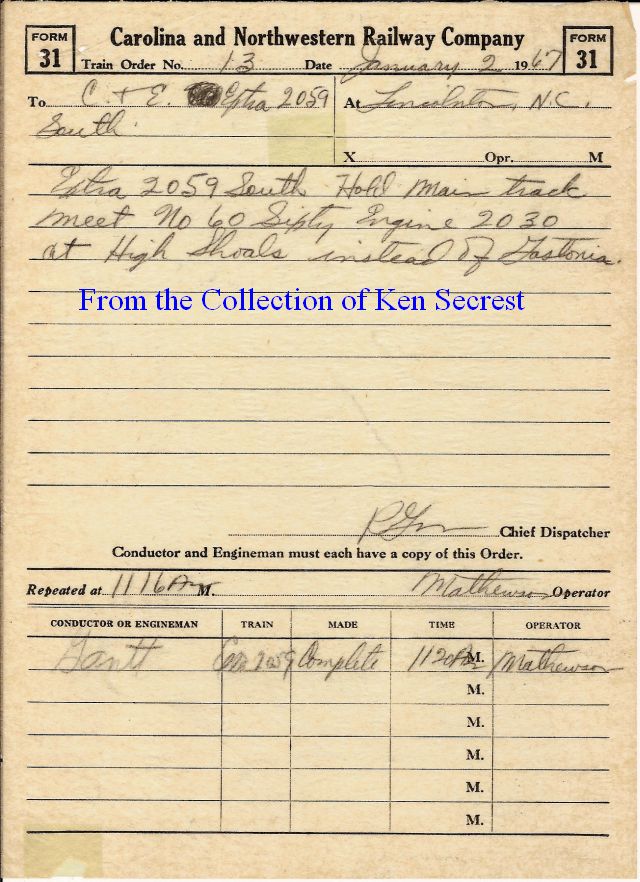 FORM 31
Carolina and Northwestern Railway Company
FORM 31
Train Order No. 13 Date January 2 1967
To C. + E. Extra 2059 At Lincolnton, N.C.
South
X Opr. M
Extra 2059 South Hold main track
meet No 60 Sixty Engine 2030
at High Shoals instead of Gastonia.
From the Collection of Ken Secrest
Chief Dispatcher
Conductor and Engineman must each have a copy of this Order.
Repeated at 1116 Am M. Mathewson Operator
CONDUCTOR OR ENGINEMAN TRAIN MADE TIME OPERATOR
Gantt 2059 Complete 1120 Am M. Mathewson
M.
M.
M.
M.
M.